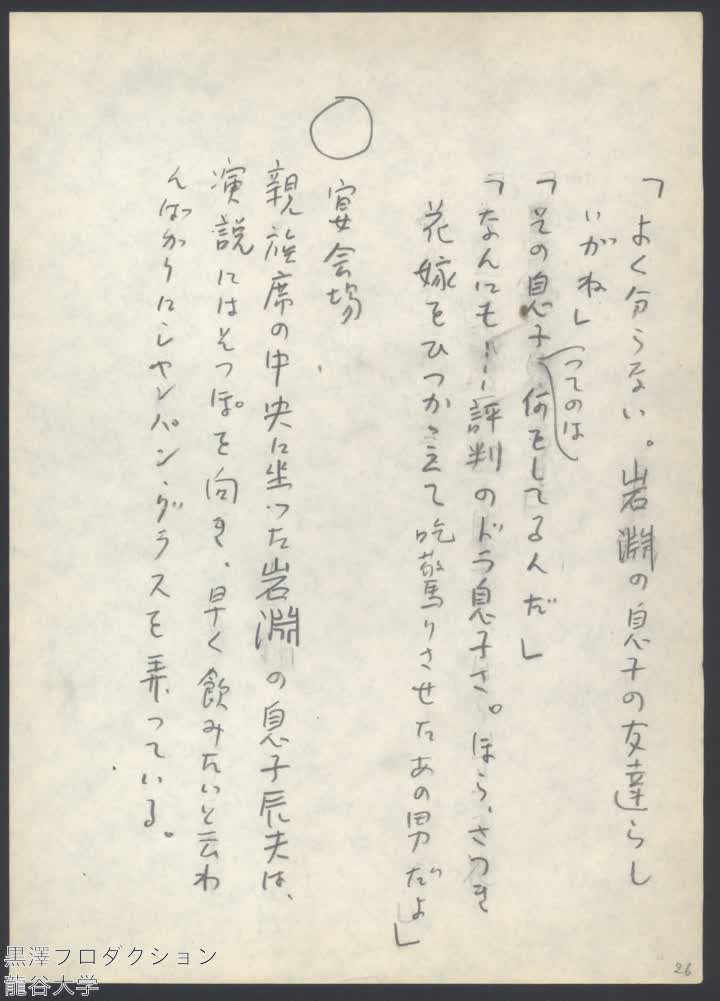 「よく分らない。岩淵の息子の友達らし
いがね」
「その息子ってのは何をしてるんだ」
「なんにも……評判のドラ息子さ。ほら、さつき
花嫁をひつかゝえて吃驚りさせたあの男だよ」
○
宴会場
親族席の中央に坐つた岩淵の息子辰夫は、
演説にはそつぽを向き、早く飲みたいと云わ
んばかりにシャンパン・グラスを弄つている。
26
黒澤プロダクション
龍谷大学